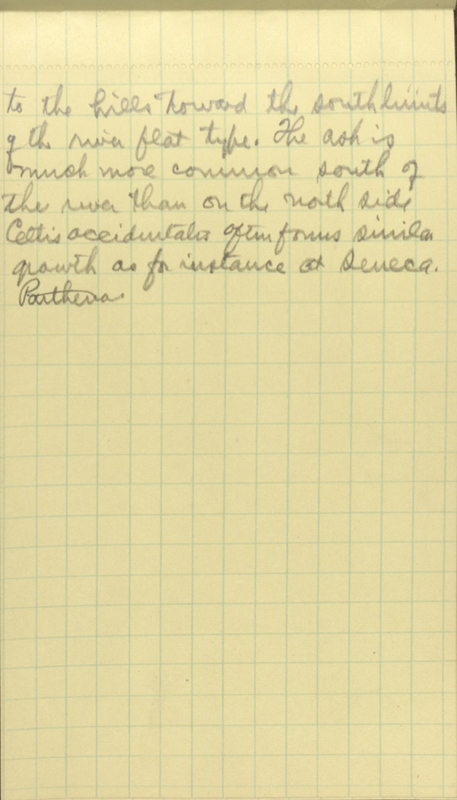 to the hills toward the south limits
of the river flat type. The ash is
much more common south of
the river than on the north side
Celtis occidentalis often forms similar
growth as for instance at Seneca.